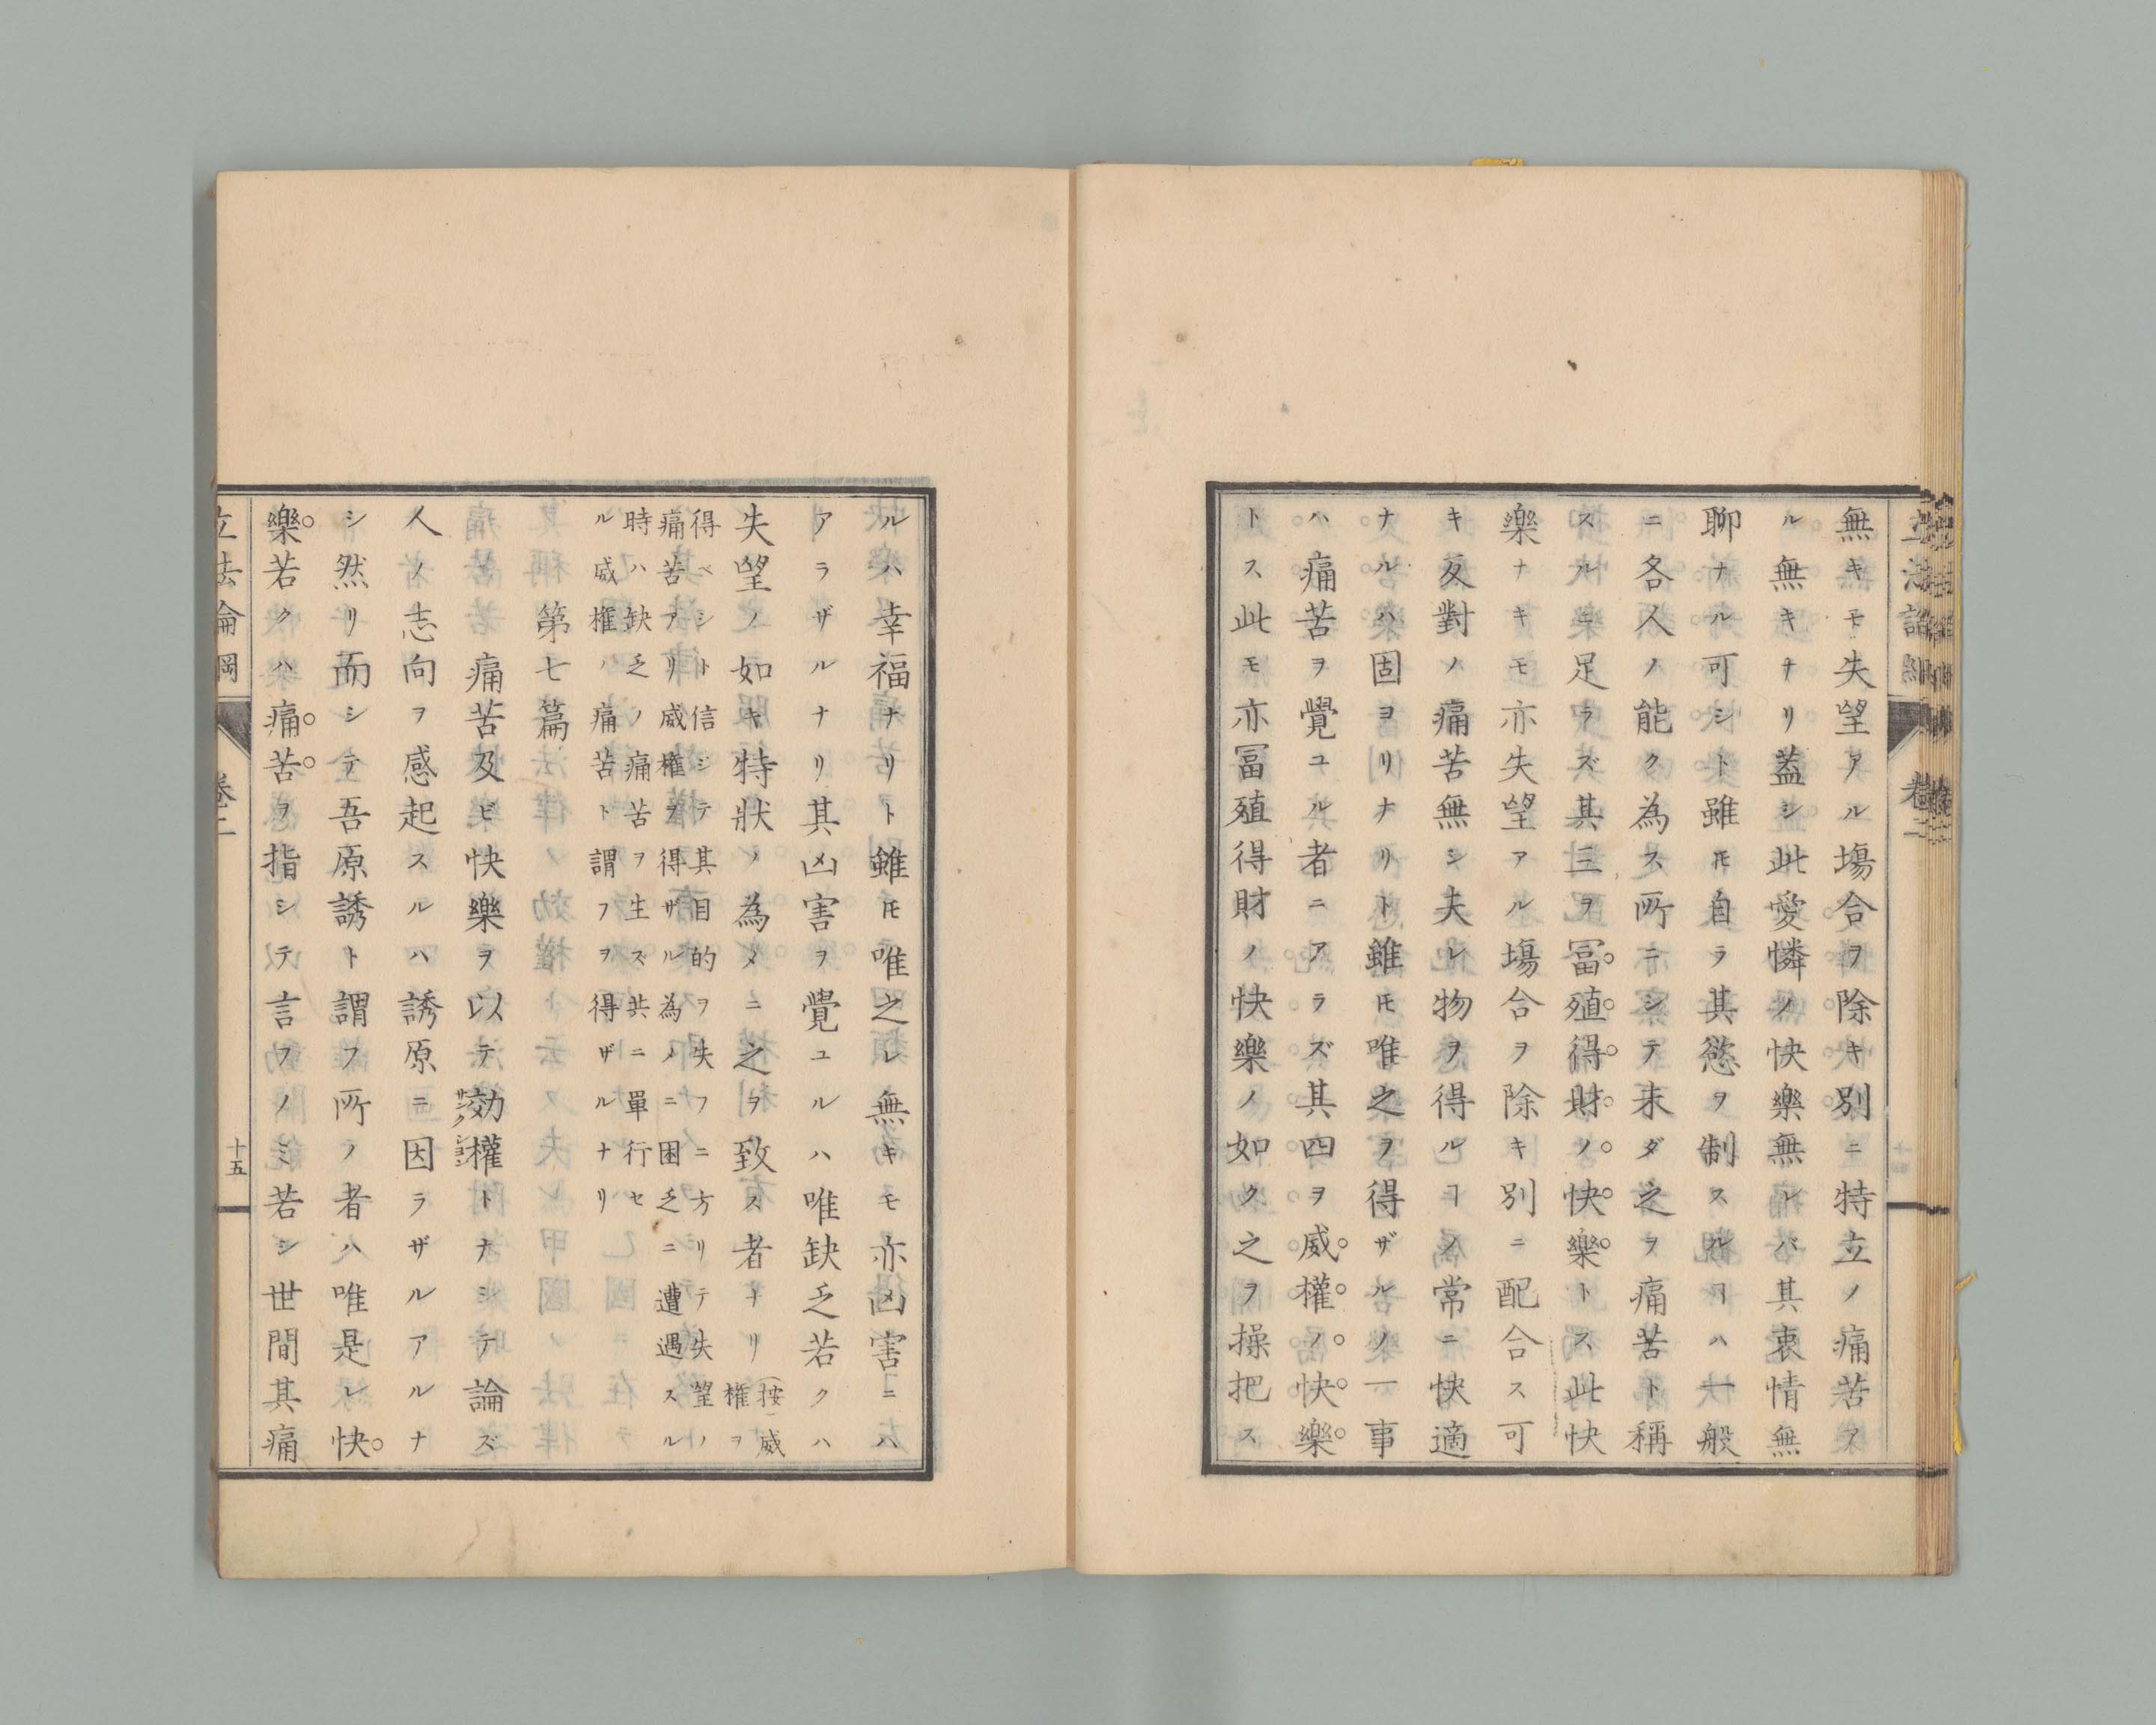 無キモ失望アル塲合ヲ除キ別ニ特立ノ痛苦ア
ル無キナリ蓋シ此愛憐ノ快樂無レバ其衷情無
聊ナル可シト雖𪜈自ラ其慾ヲ制スルヿハ一般
ニ各人ノ能ク為ス所ニシテ未ダ之ヲ痛苦ト稱
スルニ足ラズ其三ヲ冨殖得財ノ快樂トス此快
樂ナキモ亦失望アル塲合ヲ除キ別ニ配合ス可
キ反對ノ痛苦無シ夫レ物ヲ得ルヿノ常ニ快適
ナルハ固ヨリナリト雖𪜈唯之ヲ得ザルノ一事
ハ痛苦ヲ覺ユル者ニアラズ其四ヲ威權ノ快樂
トス此モ亦冨殖得財ノ快樂ノ如ク之ヲ操把ス
立法論綱 卷二
ルハ幸福ナリト雖𪜈唯之レ無キモ亦凶害ニハ
アラザルナリ其凶害ヲ覺ユルハ唯缺乏若クハ
失望ノ如キ特狀ノ為メニ之ヲ致ス者ナリ
(按威
權ヲ
得ベシト信シテ其目的ヲ失フニ方リテ失望ノ
痛苦アリ威權ヲ得ザル為メニ困乏ニ遭遇スル
時ハ缺乏ノ痛苦ヲ生ズ共ニ單行セ
ル威權ノ痛苦ト謂フヲ得ザルナリ
第七篇
痛苦及ビ快樂ヲ以テ効權トナシテ論ズ
サンクシヨン
人ノ志向ヲ感起スルハ誘原ニ因ラザルアルナ
シ然リ而シテ吾原誘ト謂フ所ノ者ハ唯是レ快
樂若クハ痛苦ヲ指シテ言フノミ若シ世間其痛
立法論綱 卷二 十五